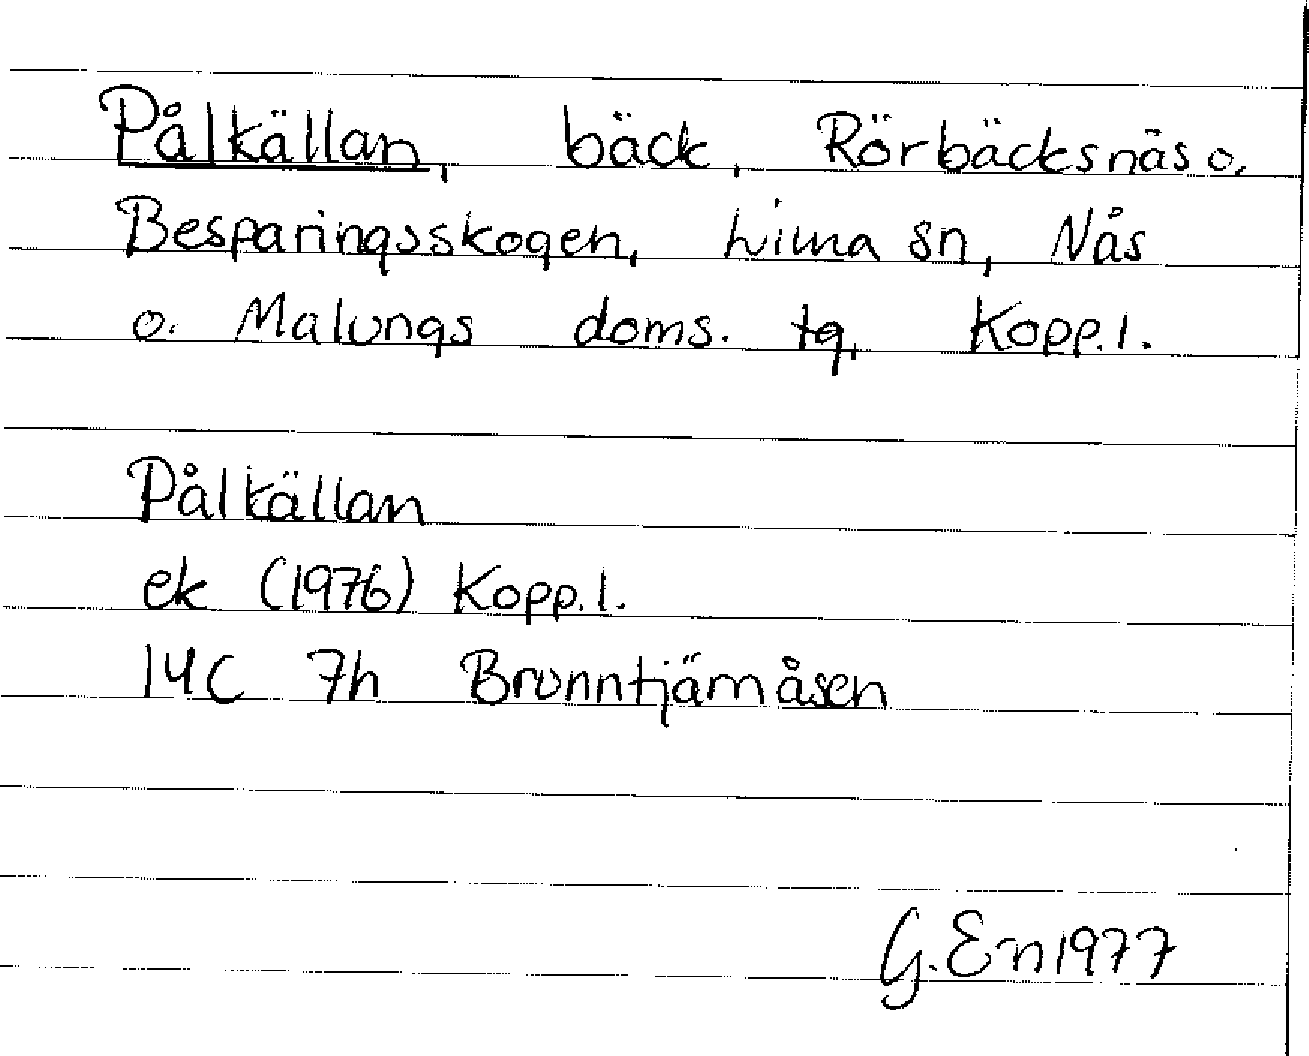 Pålkällan, bäck, Rörbäcksnäs o.
Besparingsskogen, Lima sn, Nås
o. Malungs doms. tg, Kopp. l.
Pålkällan
ek (1976) Kopp. l.
14C 7h Brunntjärnåsen
G. En 1977